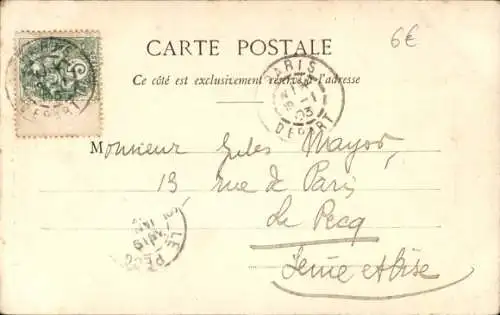 CARTE POSTALE
6€
Ce côté est exclusivement réservé à l'adresse
PARIS
DEPART
Monsieur Jules Mayor
13 rue de Paris
Le Pecq
Seine et Oise
LE PECQ